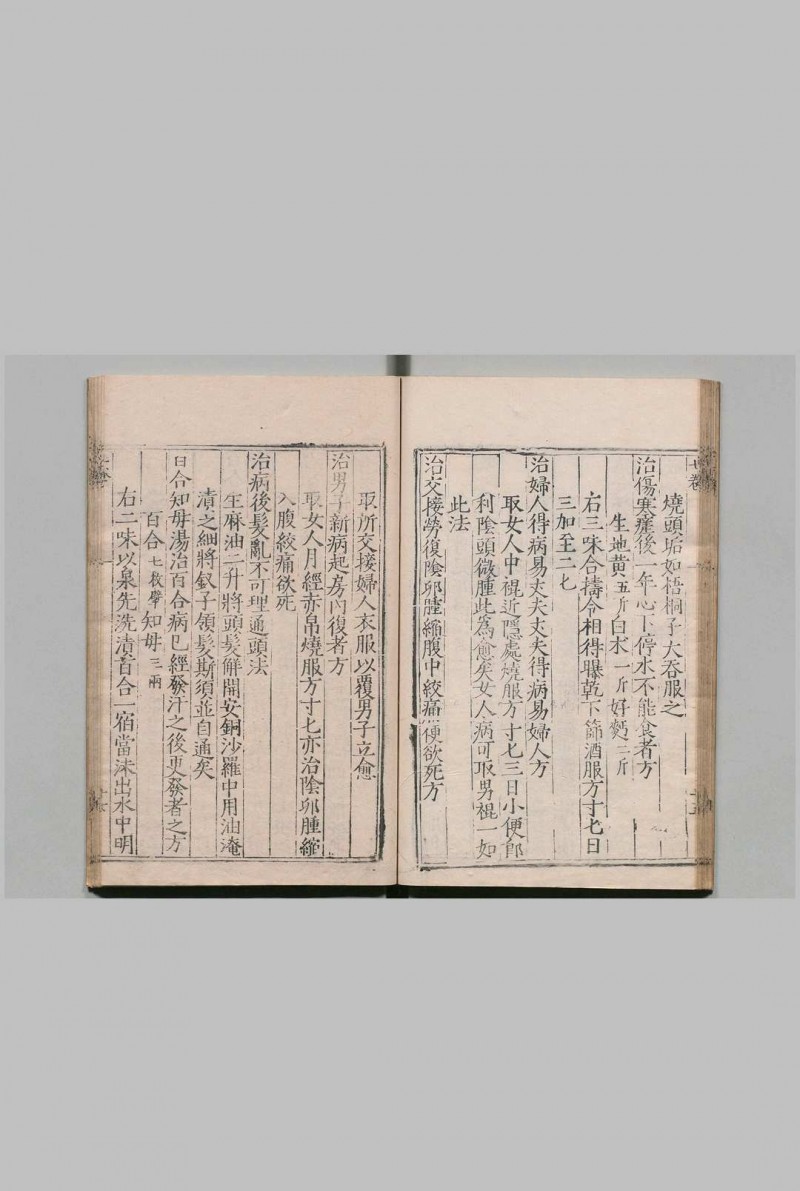 燒頭垢如梧桐子大吞服之
治傷寒瘥後一年心下停水不能食者方
生地黃五斤白水一斤好麪三斤
右三味合擣令相得曝乾下篩酒服方寸匕日
三加至二七
治婦人得病易丈夫丈夫得病易婦人方
取女人中裩近隱處燒服方寸匕三日小便即
利陰頭微腫此為愈矣女人病可取男裩一如
此法
治交接勞復陰卵腫縮腹中絞痛便欲死方
取所交接婦人衣服以覆男子立愈
治男子新病起房內復者方
取女人月經赤帛燒服方寸匕亦治陰卵腫縮
入腹絞痛欲死
治病後髮亂不可理通頭法
生麻油二升將頭髮解開安銅沙羅中用油淹
漬之細將釵子領髮斯須並自通矣
百合知母湯治百合病已經發汗之後更發者之方
百合七枚擘知母三兩
右二味以泉先洗漬百合一宿當沫出水中明